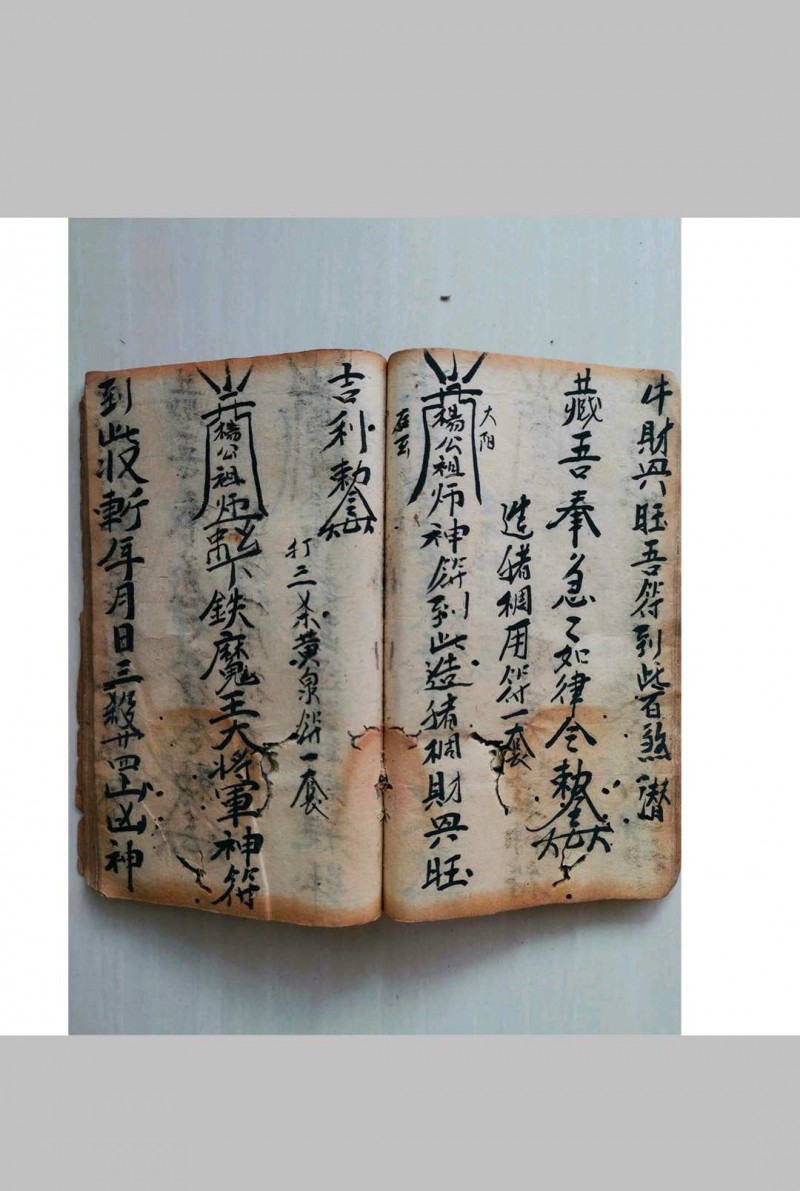 牛財興旺吾符到此百煞潛
藏吾奉急々如律令勅
造猪栏用符一套
大阳
楊公祖师神符到此造猪栏財興旺
吉利勅令
打三杀黄泉符一套
楊公祖师下鉄魔王大將軍神符
到此收斬年月日三殺廿四山凶神